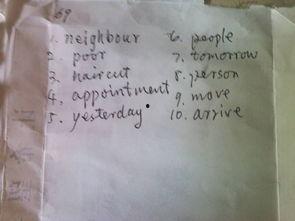 69
1. neighbour
2. poor
3. haircut
4. appointment
5. yesterday
6. people
7. tomorrow
8. person
9. move
10. arrive